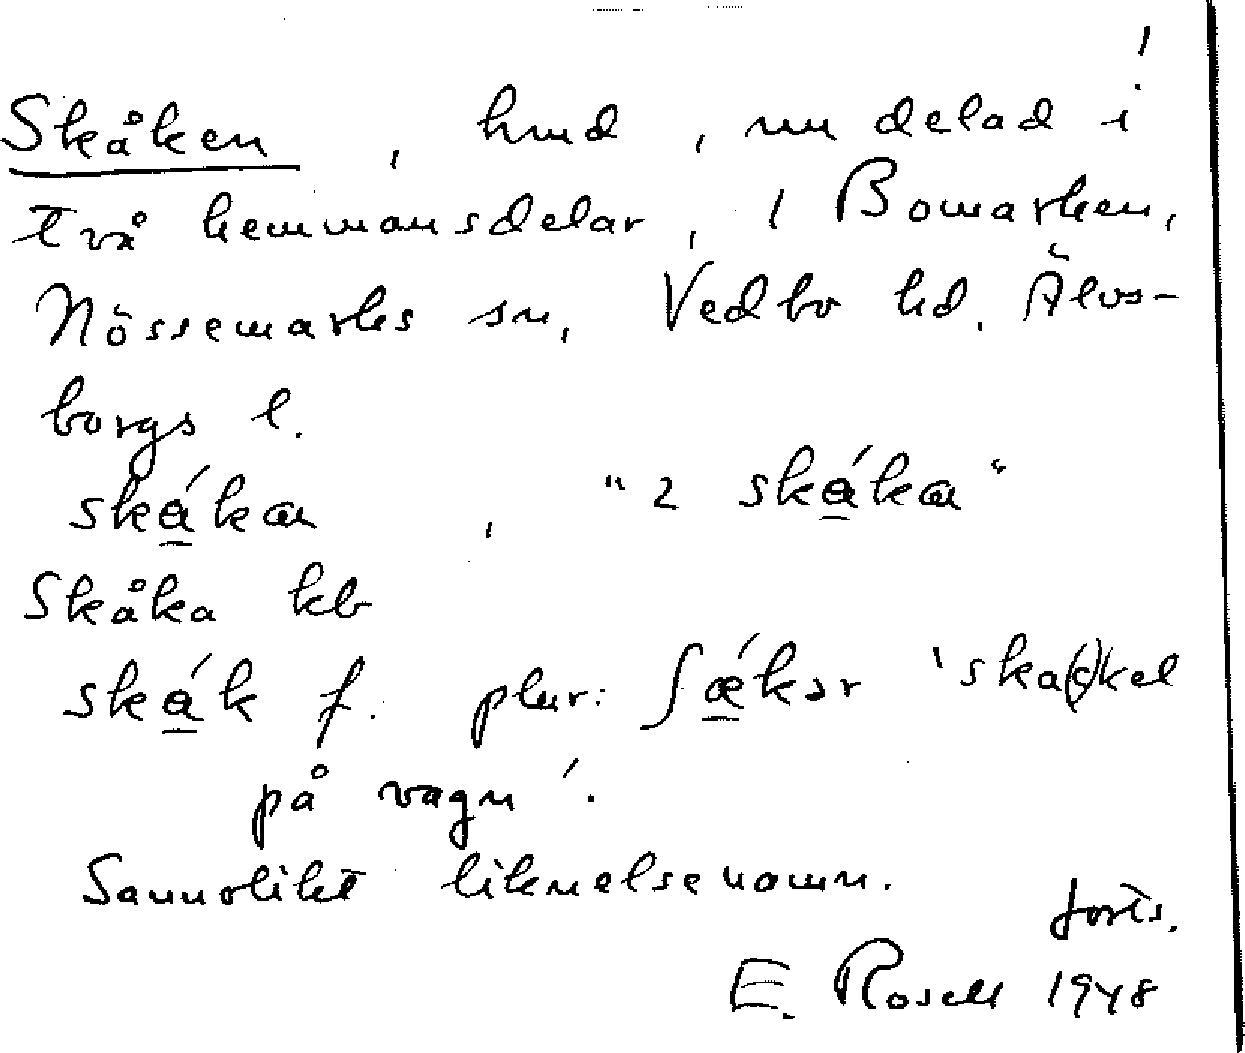 1
Skåken , hmd , nu delad i
två hemmansdelar , i Bomarken,
Nössemarks sn, Vedbo hd. Älvs-
borgs l.
ská̱kan , "2 ská̱ka"
Skåka kb
ská̱k f. plur: ʃǽ̱kər 'ska(c)kel
på vagn'.
Sannolikt liknelsenamn.
forts.
E. Rosell 1948